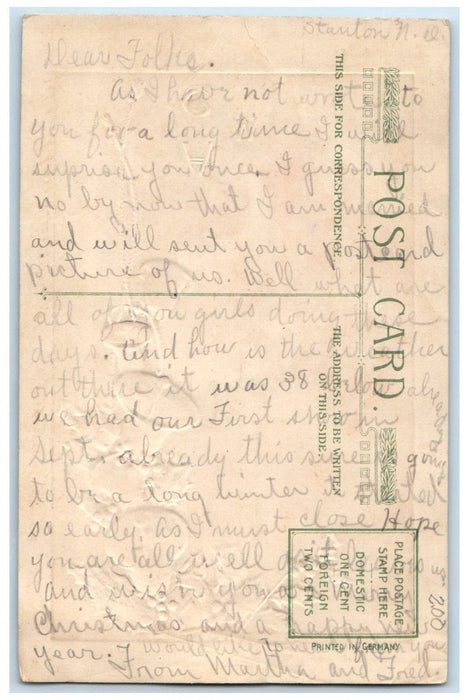 Stanton N. D.
Dear Folks.
As I have not written to
you for a long time I will
suprise you once. I guess you
no by now that I am married
and will sent you a postcard
picture of us. Well what are
all of you girls doing these
days. And how is the weather
out there it was 38 below already
we had our First snow in
Sept. already this sure going
to be a long winter started
so early. As I must close Hope
you are all well as it leaves us
and wish you a Merry
Christmas and a happy new
year. I would like to hear from you
From Martha and Fred.
200
POST CARD.
THIS SIDE FOR CORRESPONDENCE
THE ADDRESS TO BE WRITTEN
ON THIS SIDE.
PLACE POSTAGE
STAMP HERE
DOMESTIC
ONE CENT
FOREIGN
TWO CENTS
PRINTED IN GERMANY